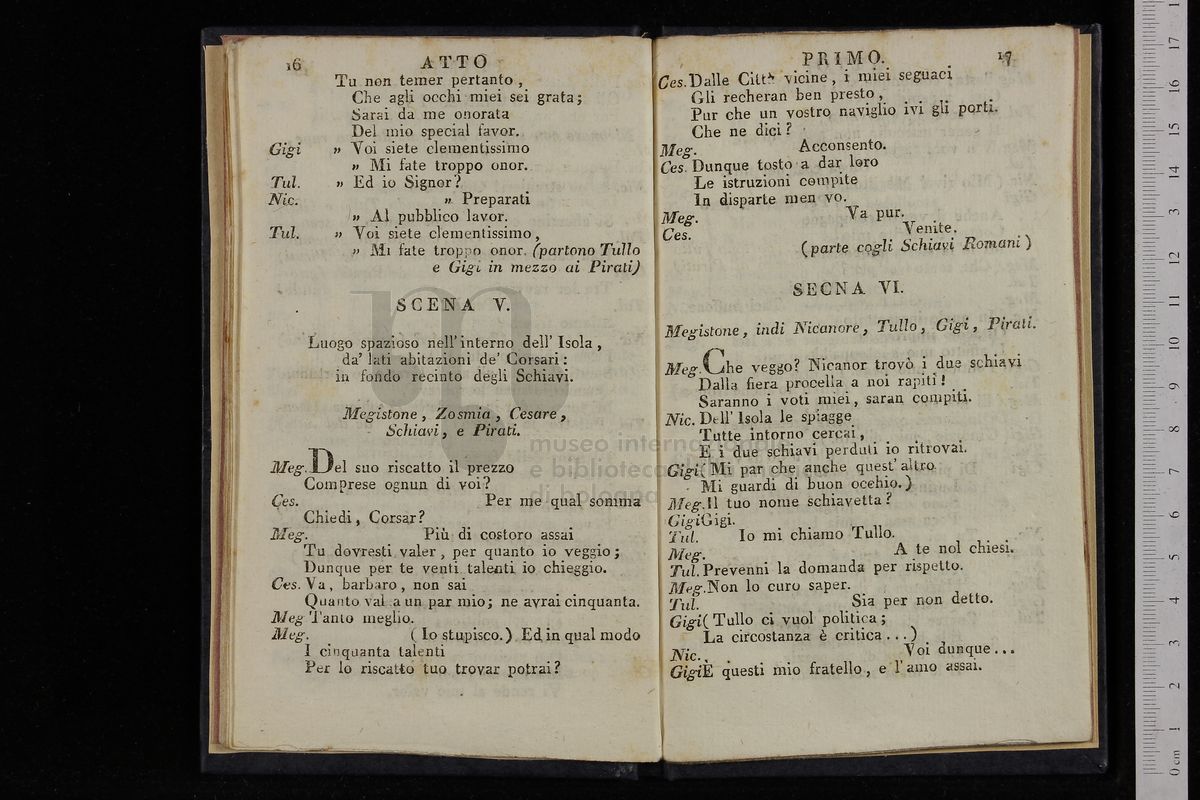 16 ATTO
Tu non temer pertanto,
Che agli occhi miei sei grata;
Sarai da me onorata
Del mio special favor.
Gigi „ Voi siete clementissimo
„ Mi fate troppo onor.
Tul. „ Ed io Signor?
Nic. „ Preparati
„ Al pubblico lavor.
Tul. „ Voi siete clementissimo,
„ Mi fate troppo onor. (partono Tullo
e Gigi in mezzo ai Pirati)
SCENA V.
Luogo spazioso nell'interno dell' Isola,
da' lati abitazioni de' Corsari:
in fondo recinto degli Schiavi.
Megistone, Zosmia, Cesare,
Schiavi, e Pirati.
Meg. Del suo riscatto il prezzo
Comprese ognun di voi?
Ces. Per me qual somma
Chiedi, Corsar?
Meg. Più di costoro assai
Tu dovresti valer, per quanto io veggio;
Dunque per te venti talenti io chieggio.
Ces. Va, barbaro, non sai
Quanto val a un par mio; ne avrai cinquanta.
Meg Tanto meglio.
Meg. (Io stupisco.) Ed in qual modo
I cinquanta talenti
Per lo riscatto tuo trovar potrai?
PRIMO. 17
Ces. Dalle Città vicine, i miei seguaci
Gli recheran ben presto,
Pur che un vostro naviglio ivi gli porti.
Che ne dici?
Meg. Acconsento.
Ces. Dunque tosto a dar loro
Le istruzioni compite
In disparte men vo.
Meg. Va pur.
Ces. Venite.
(parte cogli Schiavi Romani)
SECNA VI.
Megistone, indi Nicanore, Tullo, Gigi, Pirati.
Meg. Che veggo? Nicanor trovò i due schiavi
Dalla fiera procella a noi rapiti!
Saranno i voti miei, saran compiti.
Nic. Dell' Isola le spiagge
Tutte intorno cercai,
E i due schiavi perduti io ritrovai.
Gigi (Mi par che anche quest'altro
Mi guardi di buon occhio.)
Meg. Il tuo nome schiavetta?
Gigi Gigi.
Tul. Io mi chiamo Tullo.
Meg. A te nol chiesi.
Tul. Prevenni la domanda per rispetto.
Meg. Non lo curo saper.
Tul. Sia per non detto.
Gigi (Tullo ci vuol politica;
La circostanza è critica...)
Nic. Voi dunque...
Gigi E questi mio fratello, e l'amo assai.
museo internazionale
e biblioteca
di bologna